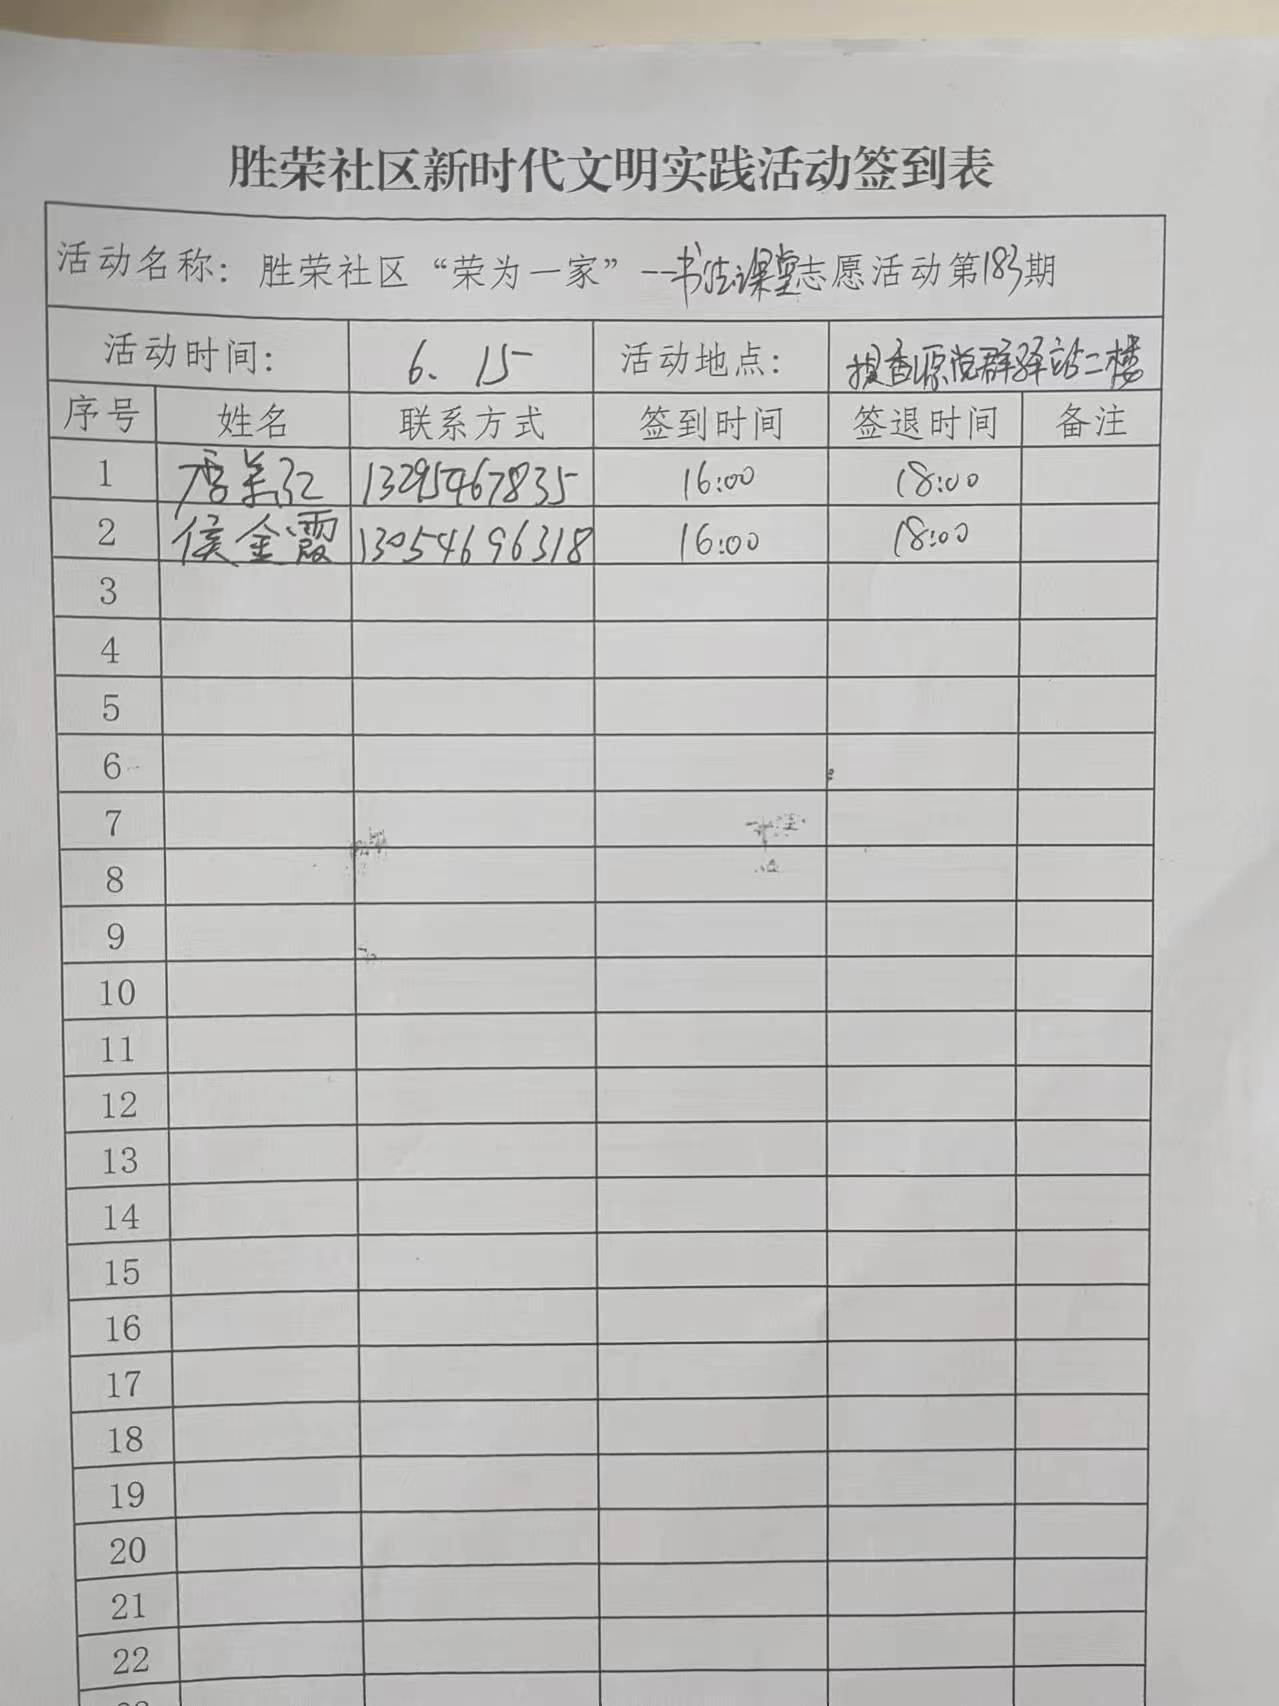 胜荣社区新时代文明实践活动签到表
活动名称：胜荣社区“荣为一家”--书法课堂志愿活动第183期
活动时间： 6.15 活动地点： 香源党群驿站二楼
序号 姓名 联系方式 签到时间 签退时间 备注
1 13295467835 16:00 18:00
2 侯金霞 13054696318 16:00 18:00
3
4
5
6
7
8
9
10
11
12
13
14
15
16
17
18
19
20
21
22